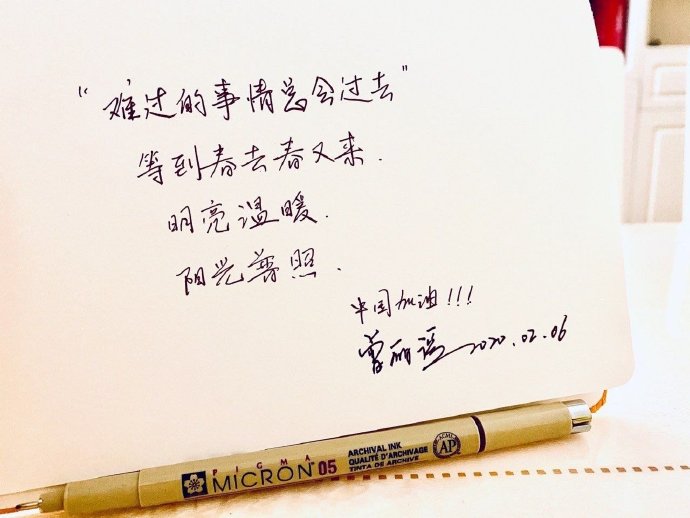 “难过的事情总会过去”
等到春去春又来.
明亮温暖.
阳光普照.
中国加油!!!
曾丽瑶 2020.02.06
PIGMA
MICRON 05
ARCHIVAL INK
QUALITÉ D'ARCHIVAGE
TINTA DE ARCHIVE
ACMI
AP